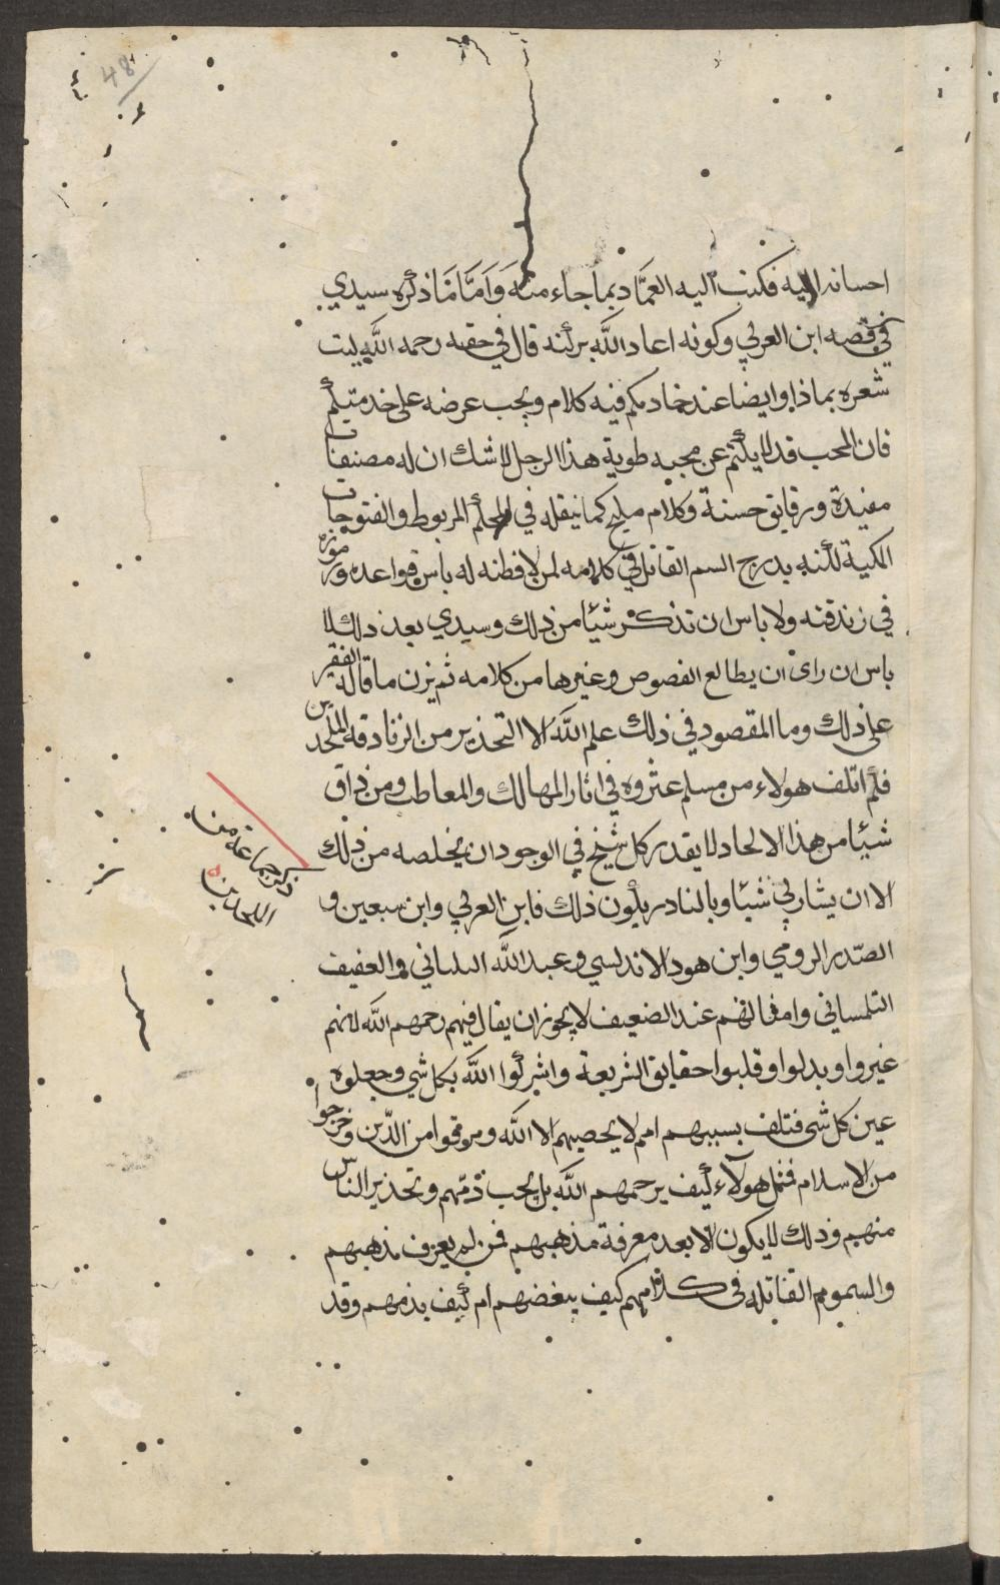 48
احسانه اليه فكتب اليه العماد بما جاء منه وَاَمَّا مَا ذكره سيدي
في قصه ابن العربي وكونه اعاد الله بركته قال في حقه رحمه الله ليت
شعره بماذا وايضا عند خادمكم فيه كلام ويجب عرضه على خدمتكم
فان المحب قد لا يكتم عن محبه طوية هذا الرجل لا شك ان له مصنفات
مفيدة ورقايق حسنة وكلام مليح كما نيقله في المحكم المربوط والفتوحات
المكية لكنه يدرج السم القاتل في كلامه لمن لا فطنه له باس قواعده ورموزه
في زندقته ولا باس ان تذكر شيئا من ذلك وسيدي بعد ذلك لا
باس ان راى ان يطالع الفصوص وغيرها من كلامه ثم يزن ما قاله الفقير
على ذلك وما المقصود في ذلك علم الله الا التحذير من الزنادقه الملحدين
فكم اتلف هولاء من مسلم عثروه في اثار المهالك والمعاطب ومن ذاق
شيئا من هذا الالحاد لا يقدر كل شيخ في الوجود ان يخلصه من ذلك
الا ان يشا ربي شيئا وبالنادر يكون ذلك فابن العربي وابن سبعين و
الصّدر الرومي وابن هود الاندلسي وعبد الله البلباني والعفيف
التلمساني وامثالهم عند الضعيف لا يجوز ان يقال فيهم رحمهم الله لانهم
غيروا وبدلوا وقلبوا حقايق الشريعة واشركوا الله بكل شي وجعلوه
عين كل شى فتلف بسببهم امم لا يحصيهم الا الله ومرقوا من الدّين وخرجوا
من الاسلام فمثل هولآء كيف يرحمهم الله بل يجب ذمّهم وتحذير الناس
منهم وذلك لا يكون الا بعد معرفة مذهبهم فمن لم يعرف مذهبهم
والسموم القاتله في كلامهم كيف يبغضهم ام كيف يذمهم وقد
ذكر جماعة من
الملحدين